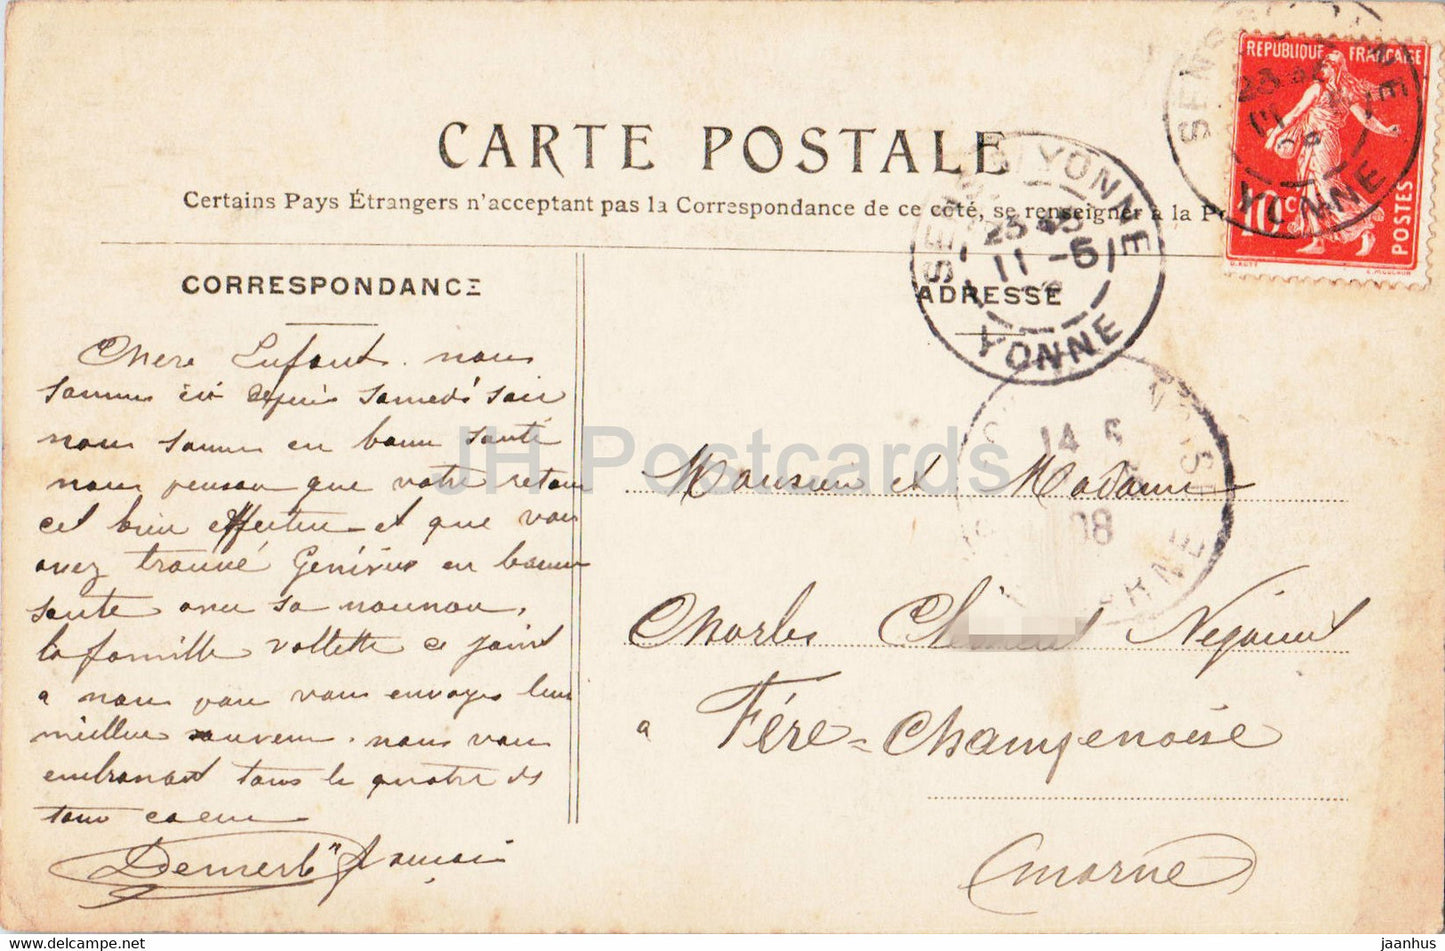 CARTE POSTALE
Certains Pays Étrangers n'acceptant pas la Correspondance de ce côté, se renseigner à la
REPUBLIQUE FRANÇAISE
10 c
POSTES
YONNE
SENS YONNE
11 -5
YONNE
CORRESPONDANCE
ADRESSE
Chere Enfant. nous
sommes ici depuis samedi soir
nous sommes en bonne santé
nous penson que votre retour
cet bien effectue et que vous
avez trouvé en bonne
sante avec sa nounou,
la famille vollette ce joint
a nous pour vous envoyer leur
meilleur souvenir. nous vous
embrassont tous le quatre de
tout coeur
14 5
08
MARNE
Monsieur et Madame
Charles
a Fère-Champenoise
Marne
JH Postcards
jaanhus @ delcampe.net